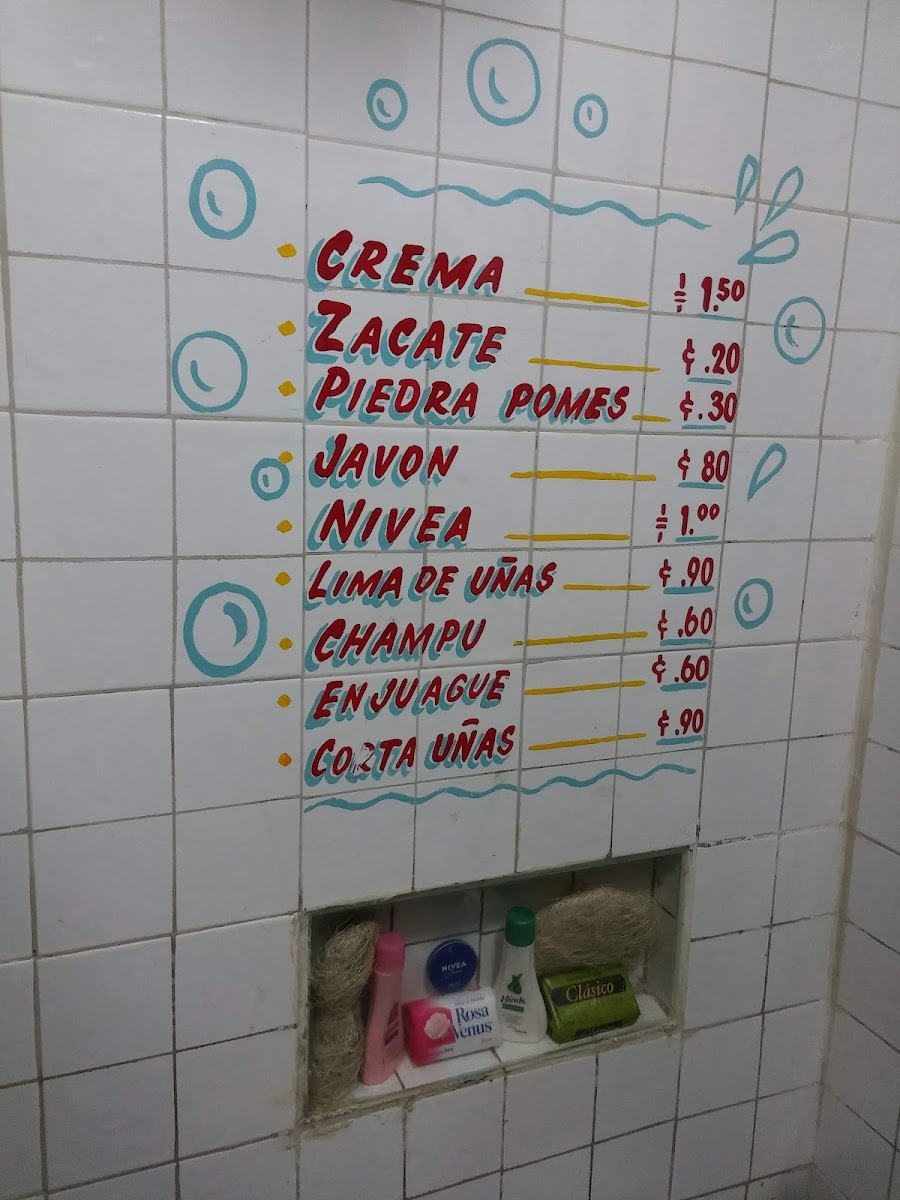 CREMA 1.50
ZACATE ¢ .20
PIEDRA POMES ¢ .30
JAVON ¢ 80
NIVEA 1.00
LIMA DE UÑAS ¢ .90
CHAMPU ¢ .60
ENJUAGUE ¢ .60
CORTA UÑAS ¢ .90
NIVEA
Rosa Venus
Hinds
Clásico